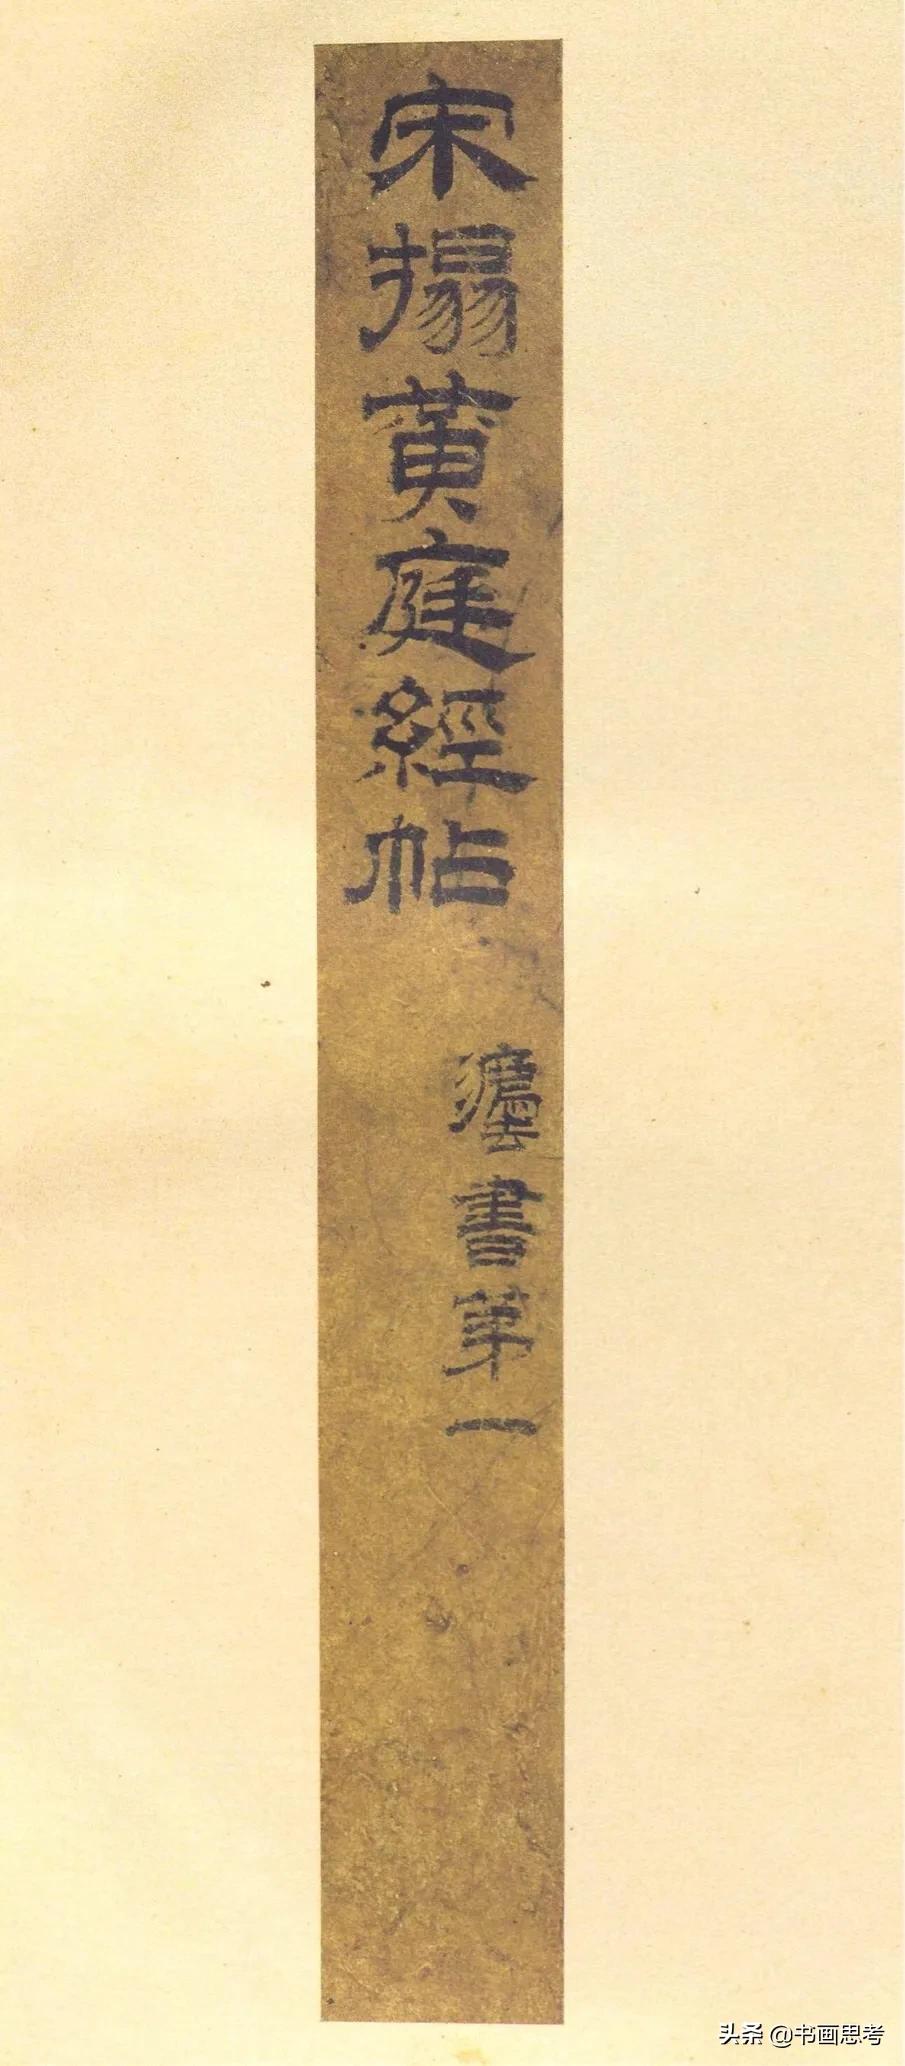 宋搨黄庭經帖
書第一
头条 @书画思考